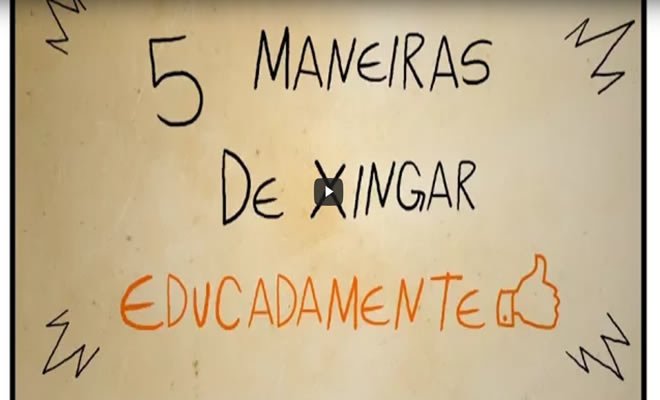 5 MANEIRAS
DE XINGAR
EDUCADAMENTE